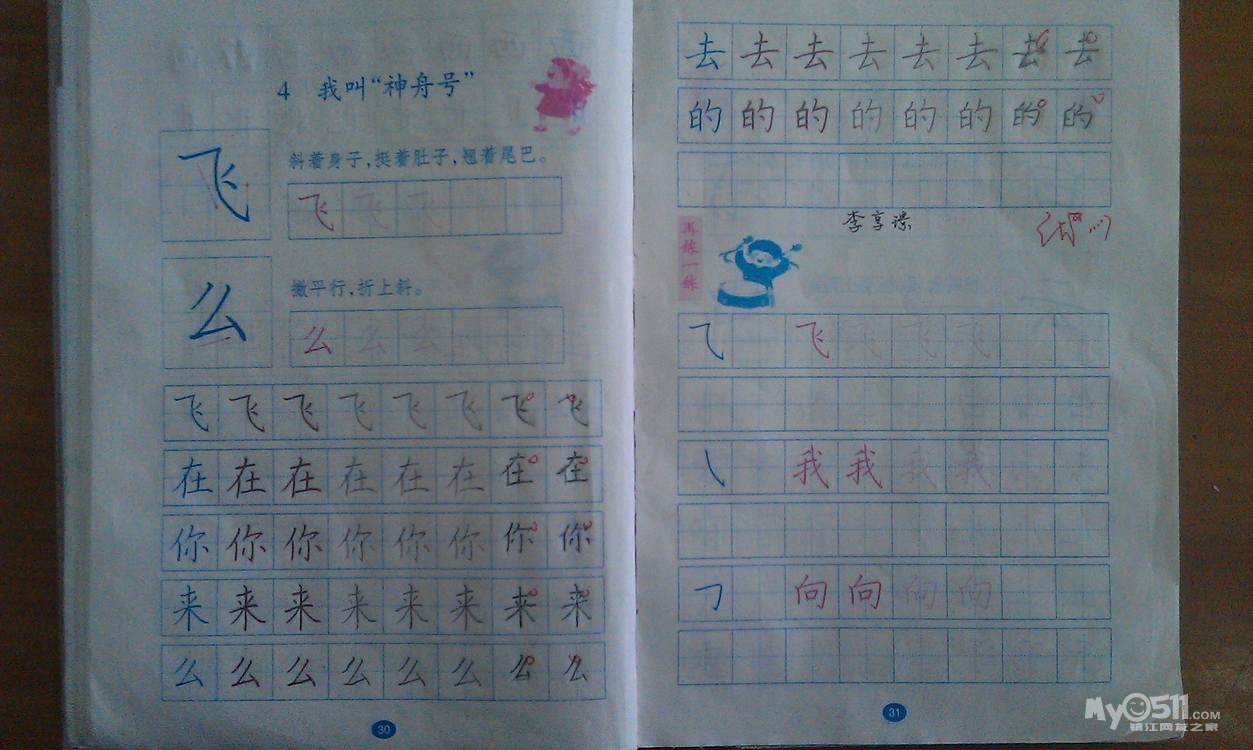 4 我叫“神舟号”
飞
斜着身子，挺着肚子，翘着尾巴。
飞飞飞
么
撇平行，折上斜。
么么么
飞飞飞飞飞飞飞飞
在在在在在在在在
你你你你你你你你
来来来来来来来来
么么么么么么么么
30
去去去去去去去去
的的的的的的的的
李享
再练一练
⺄ 飞飞飞飞
㇏ 我我我我
㇆ 向向向向
31
My0511.COM
镇江网友之家